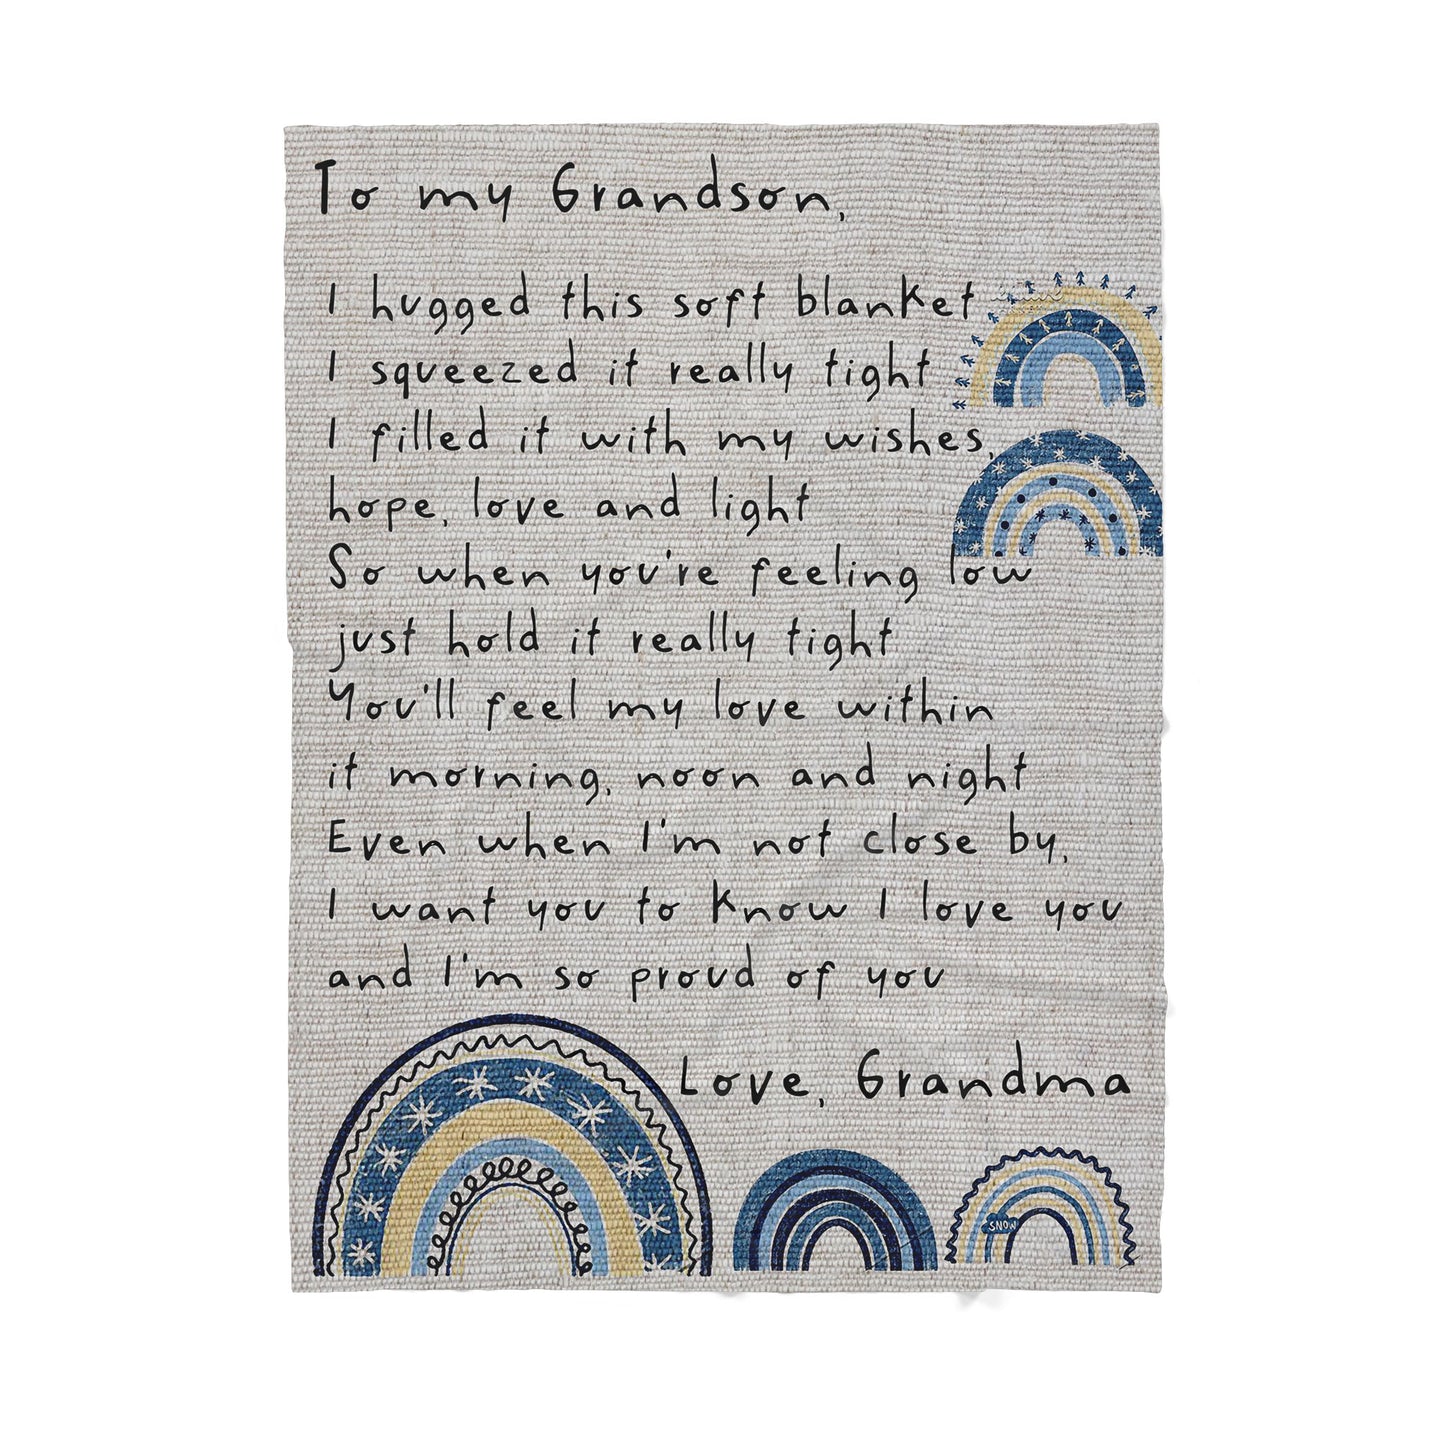 To my Grandson,
I hugged this soft blanket
I squeezed it really tight
I filled it with my wishes,
hope, love and light
So when you're feeling low
just hold it really tight
You'll feel my love within
it morning, noon and night
Even when I'm not close by,
I want you to know I love you
and I'm so proud of you
Love, Grandma
SNOW